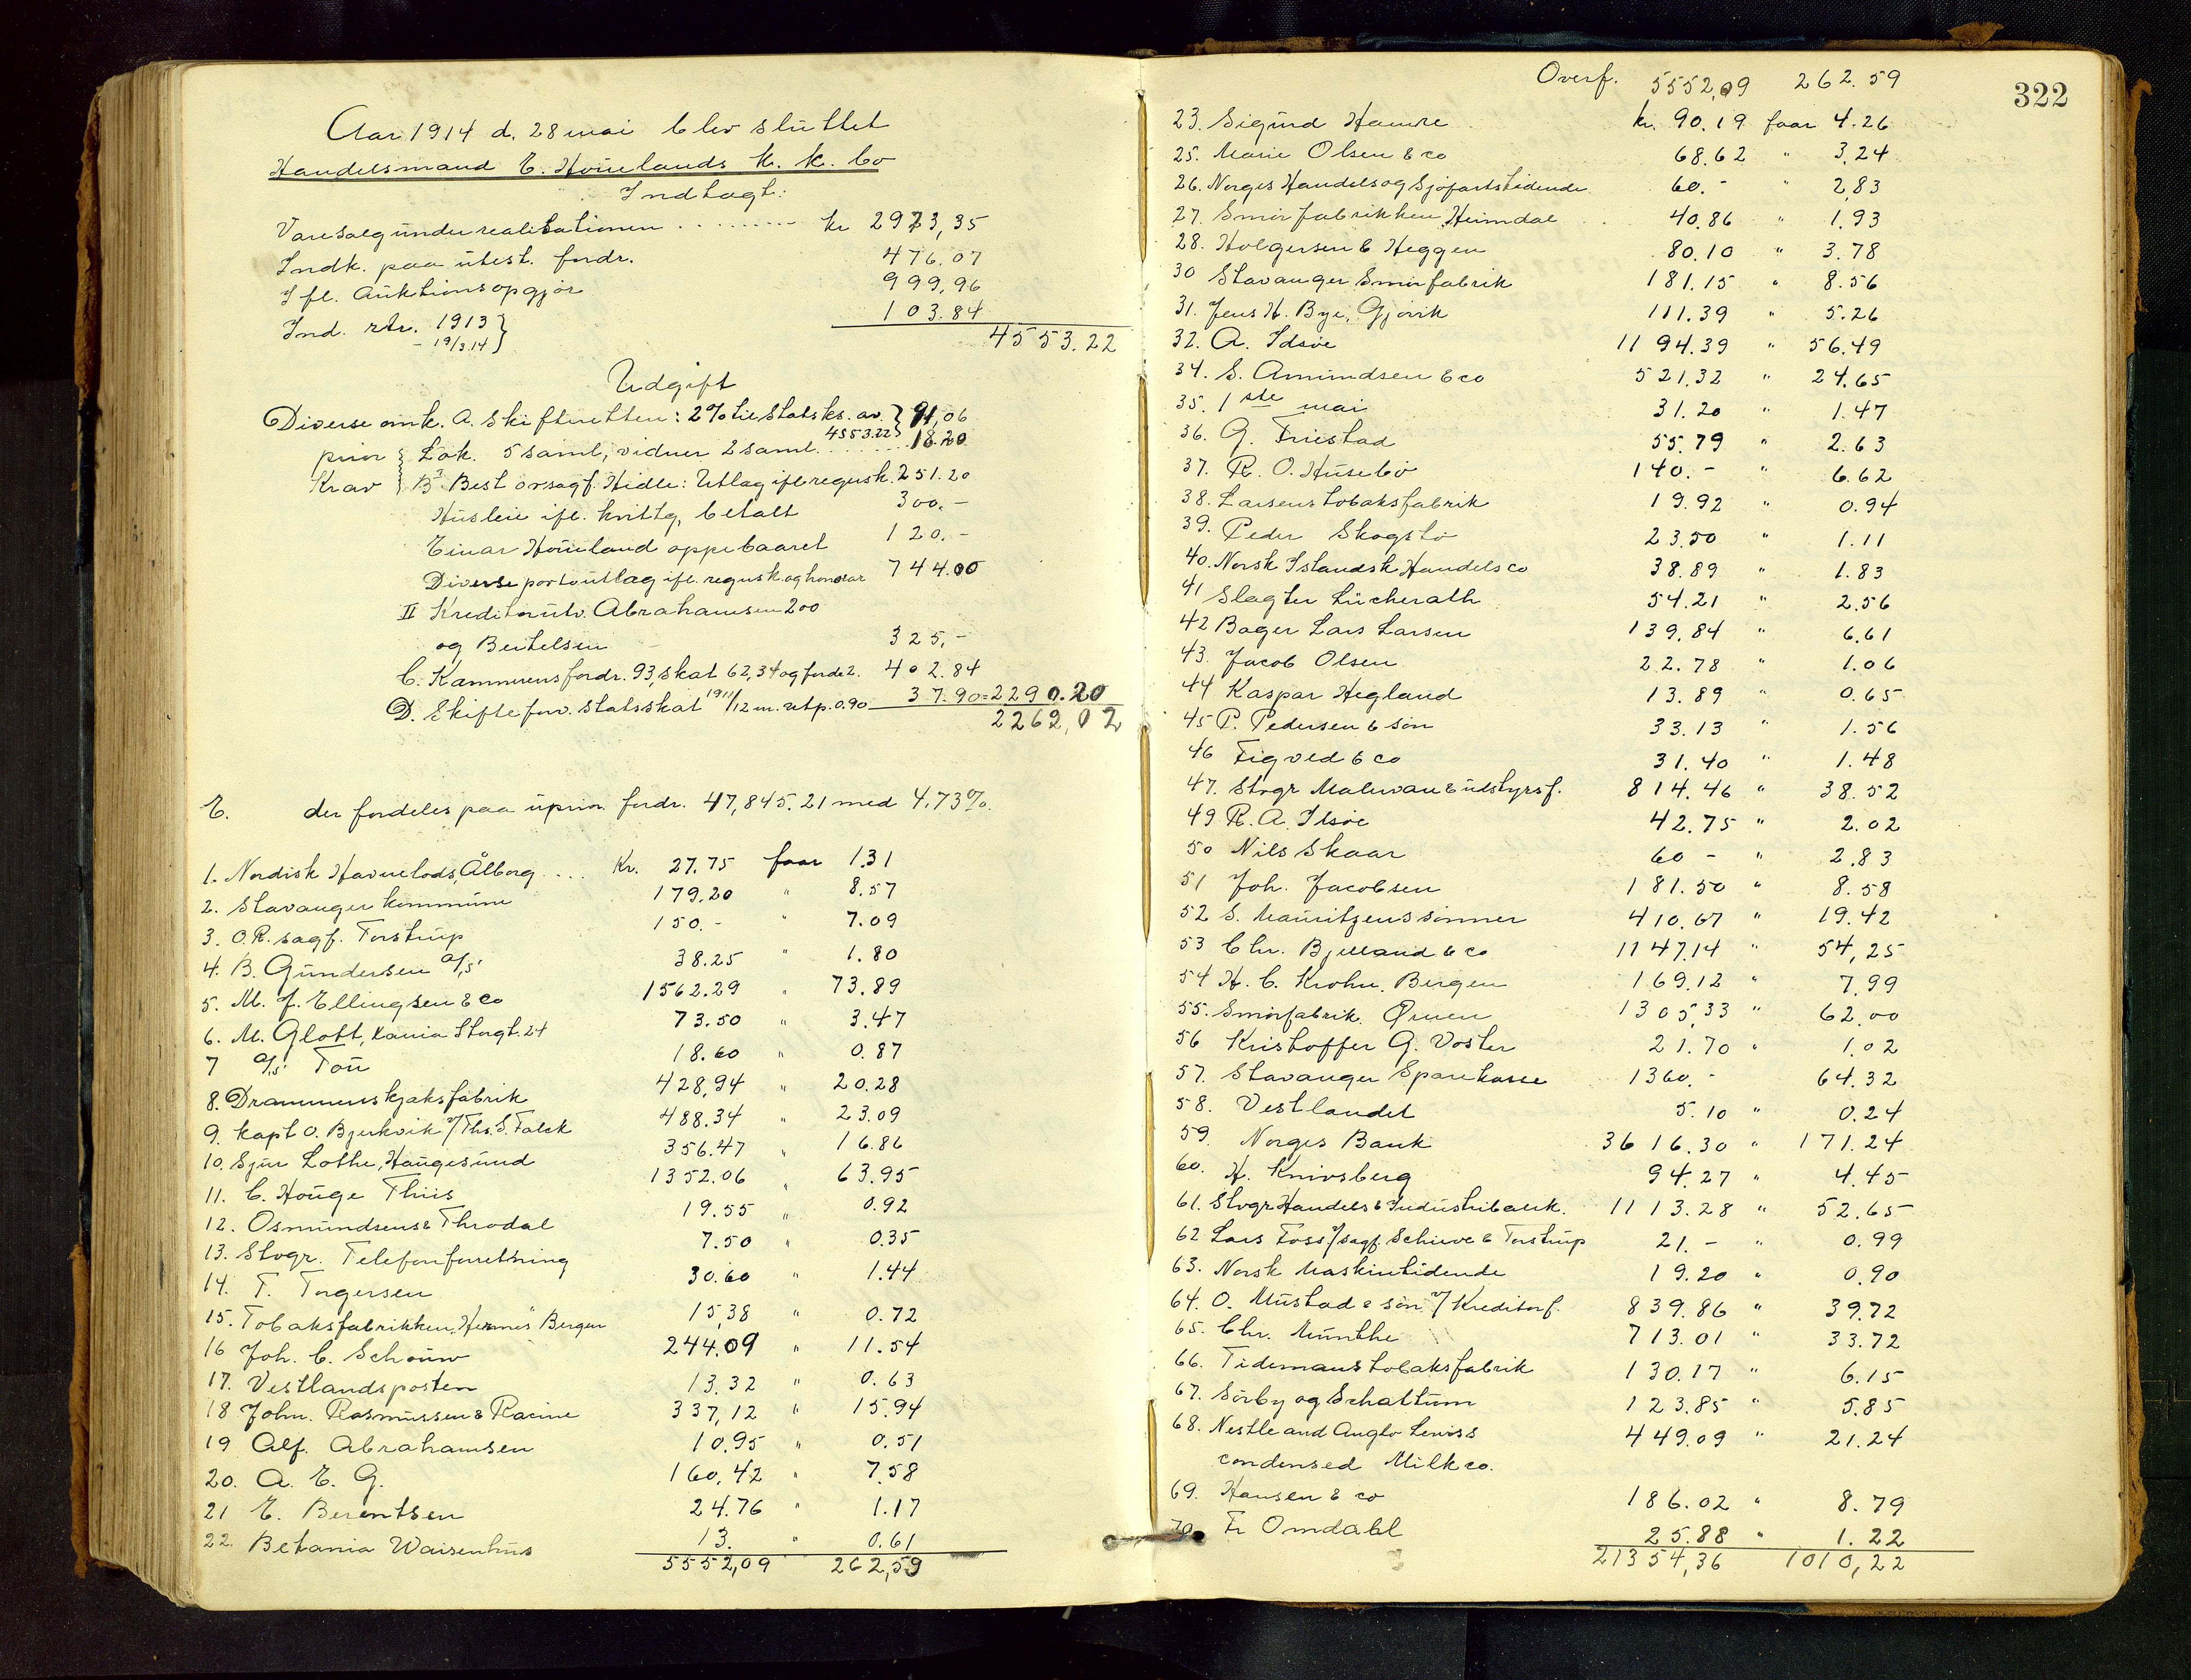 Aar 1914 d. 28 mai blev sluttet
Handelsmand E. Houelands k. k. bo
Indtagt:
Varesalg under realisationen ......... kr 2973,35
Indk. paa utest. fordr. 476.07
Ifl. Auktionsopgjör 999,96
Ind. rtr. 1913 } 103.84
- 19/3.14 4553.22
Udgift
Diverse omk. A. Skifteretten: 2% til Statsks. av } 91,06
4553.22
prior { Lok. 5 saml, vidner 2 saml. ...... 18.20
Krav B I Best. orsagf. Hidle: Utlag ifl. regnsk. 251.20
Husleie ifl. kvittg, betalt 300.-
Einar Houeland oppebaaret 120.-
Diverse portoutlag ifl. regnsk. og honorar 744.00
II Kreditorutv. Abrahamsen 200
og Bertelsen 325,-
C. Kämnerens fordr. 93, skat 62,34 og fordr 2. 402.84
D. Skifteforv. Statsskat 1911/12 m. utp. 0.90 37.90 = 2290.20
2262,02
E. der fordeles paa uprior. fordr. 47,845.21 med 4.73%.
1. Nordisk Havnelods, Ålborg .... Kr. 27.75 faar 1.31
2. Stavanger kommune 179,20 " 8.57
3. O.R. sagf. Torstrup 150.- " 7.09
4. B. Gundersen A/S 38.25 " 1.80
5. M. J. Ellingsen & Co 1562.29 " 73.89
6. M. Glott, Kania Storgt. 24 73.50 " 3.47
7 A/S Tou 18.60 " 0.87
8. Drammens kjæksfabrik 428,94 " 20.28
9. Kapt O. Bjerkvik / Ths. S. Falck 488.34 " 23.09
10. Sjur Lothe, Haugesund 356.47 " 16.86
11. C. Houge Thiis 1352.06 " 63.95
12. Osmundsen & Throdal 19.55 " 0.92
13. Stvgr. Telefonforretning 7.50 " 0.35
14. T. Torgersen 30.60 " 1.44
15. Tobaksfabrikken "Hermes" Bergen 15,38 " 0.72
16 Joh. C. Schouw 244.09 " 11.54
17. Vestlandsposten 13.32 " 0.63
18 John. Rasmussen & Racine 337,12 " 15.94
19 Alf. Abrahamsen 10.95 " 0.51
20. A. E. G. 160,42 " 7.58
21 E. Berentsen 24.76 " 1.17
22. Betania Waisenhus 13. " 0.61
5552,09 262,59
322
Overf. 5552,09 262.59
23. Sigurd Hamre kr. 90.19 faar 4.26
25. Marie Olsen & co 68.62 " 3,24
26. Norges Handels og Sjöfartstidende 60.- " 2,83
27. Smörfabrikken Heimdal 40.86 " 1.93
28. Holgersen & Heggen 80.10 " 3.78
30 Stavanger Smörfabrik 181.15 " 8.56
31. Jens H. Bye, Gjövik 111.39 " 5.26
32. A. Idsöe 1194.39 " 56.49
34. S. Amundsen & co 521,32 " 24.65
35. 1ste mai 31.20 " 1.47
36. G. Friestad 55.79 " 2.63
37. R. O. Husebö 140.- " 6.62
38. Larsens tobaksfabrik 19.92 " 0.94
39. Peder Skogstö 23.50 " 1.11
40. Norsk Islandsk Handels co 38.89 " 1.83
41 Slagter Lücherath 54.21 " 2.56
42 Bager Lars Larsen 139.84 " 6.61
43. Jacob Olsen 22.78 " 1.06
44 Kaspar Hegland 13.89 " 0.65
45 P. Pedersen & sön 33.13 " 1.56
46 Figved & co 31.40 " 1.48
47. Stvgr Malervare & udstyrsf. 814.46 " 38.52
49 R. A. Ilsöe 42.75 " 2.02
50 Nils Skaar 60 - " 2.83
51 Joh. Jacobsen 181.50 " 8.58
52 S. Mauritzens sönner 410.67 " 19.42
53 Chr. Bjelland & co 1147.14 " 54,25
54 H. C. Krohn. Bergen 169.12 " 7.99
55. Smörfabrik. Ørnen 1305,33 " 62.00
56 Kristoffer G. Voster 21.70 " 1.02
57. Stavanger Sparekasse 1360.- 64.32
58. Vestlandet 5.10 " 0.24
59. Norges Bank 3616.30 " 171.24
60. H. Knivsberg 94.27 " 4.45
61. Stvgr Handels & Industribank. 1113.28 " 52.65
62 Lars Foss / sagf. Schieve & Torstrup 21.- " 0.99
63. Norsk Maskintidende 19.20 " 0.90
64. O. Mustad & sön / Kreditorf. 839.86 " 39.72
65. Chr. Munthe 713.01 " 33.72
66. Tidemans tobaksfabrik 130.17 " 6.15
67. Sörby og Schattum 123.85 " 5.85
68. Nestle and Anglo Swiss 449.09 " 21.24
condensed Milk co.
69. Hansen & co 186.02 " 8.79
70. Fr Omdahl 25.88 " 1.22
21354,36 1010,22